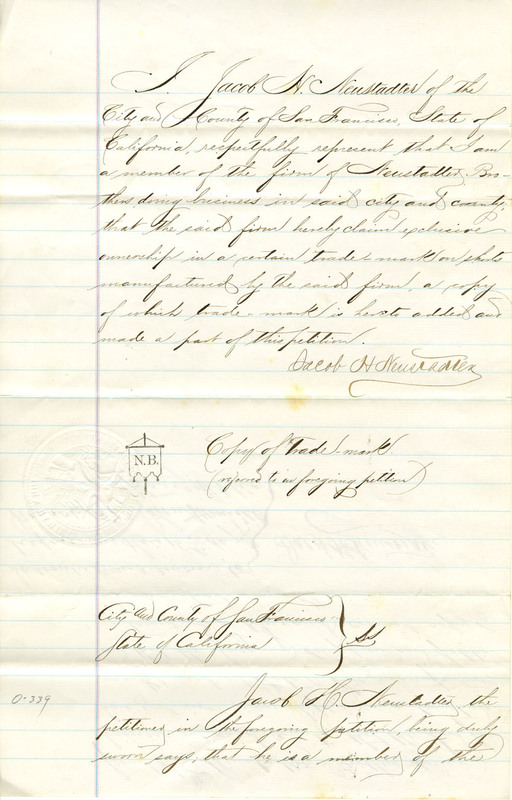 I. Jacob H. Neustadter of the
City and County of San Francisco, State of
California, respectfully represent that I am
a member of the firm of Neustadter Bro-
thers doing business in said city and county;
that the said firm hereby claim exclusive
ownership in a certain trade-mark on shirts
manufactured by the said firm, a copy
of which trade-mark is hereto added and
made a part of this petition.
Jacob H Neustadter
N.B.
Copy of trade-mark
(referred to in foregoing petition)
City and County of San Francisco
State of California } SS
Jacob H. Neustadter, the
petitioner in the foregoing petition, being duly
sworn says, that he is a member of the
0-339